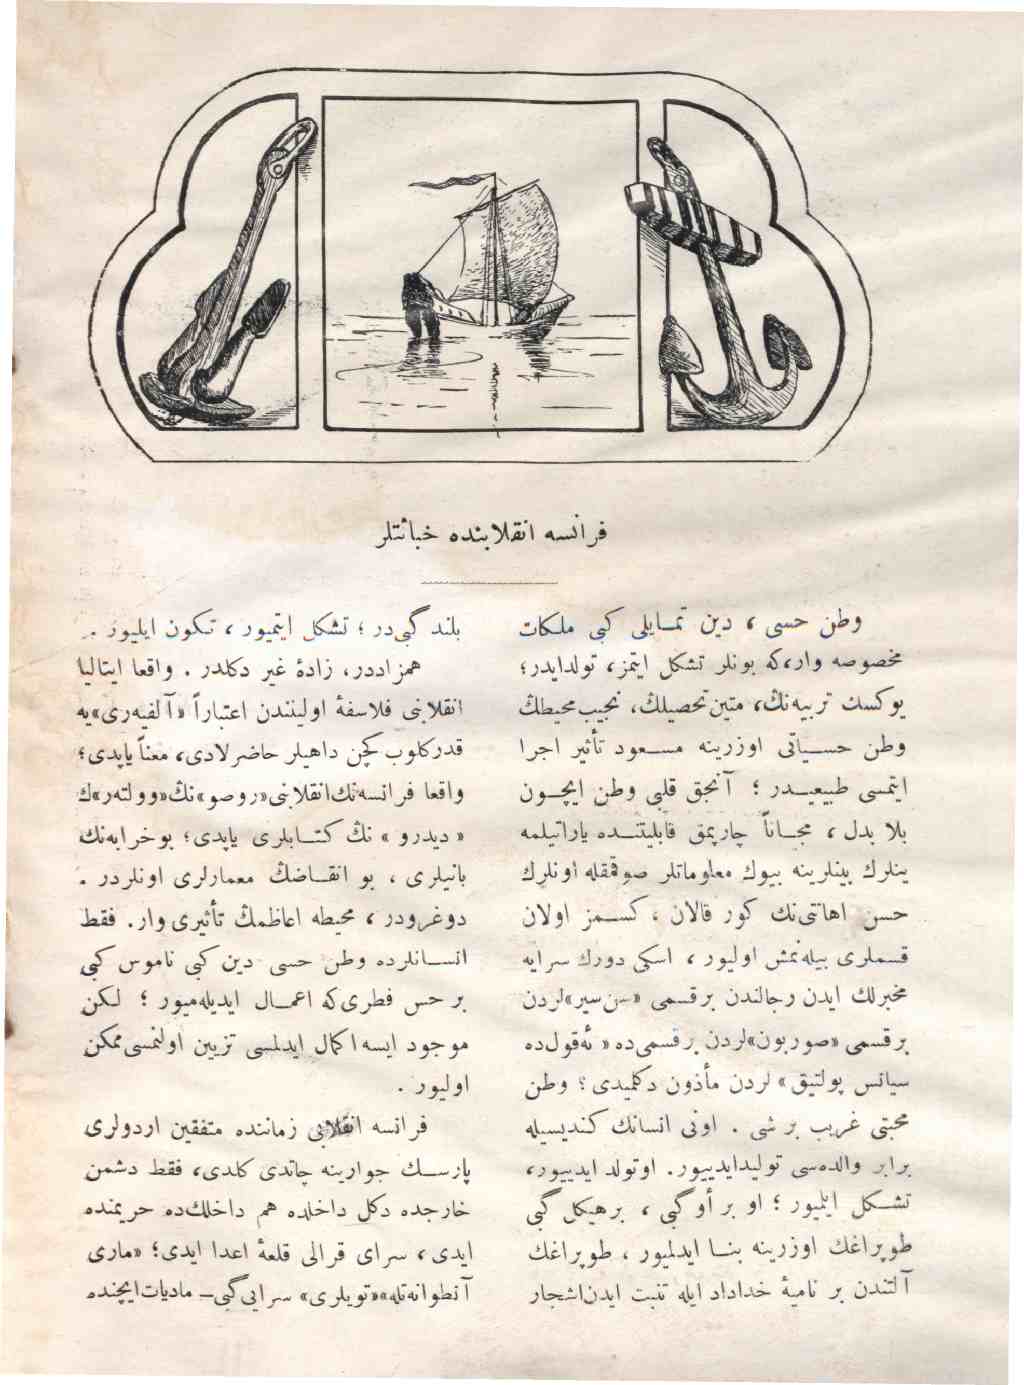 فرانسه انقلابنده خبائتلر
وطن حسی ، دین تمـایلی کبی ملـکات
مخصوصه وار،که بونلر تشکل ایتمز، تولدایدر؛
یوکسك تربیه‌نك، متین‌تحصیلك، نجیب‌محیطك
وطن حسـیاتی اوزرینه مسـعود تأثیر اجرا
ایتمسی طبیعیـدر ؛ آنجق قلبی وطن ایچـون
بلا بدل ، مجـاناً چارپمق قابلیتنـده یاراتیلمه
ینلرك بینلرینه بیوك معلوماتلر صوقمقله اونلرك
حس اهانتی‌نك کور قالان ، کسـمز اولان
قسملری بیله‌نمش اولیور ، اسکی دورك سرایه
مخبرلك ایدن رجالندن برقسمی «سن‌سیر»لردن
برقسمی «صوربون»لردن برقسمی‌ده« ئه‌قول‌ده
سیانس پولتیق» لردن مأذون دکلمیدی؟ وطن
محبتی غریب بر شی . اونی انسانك کندیسیله
برابر والده‌سی تولیدایدییور. اوتولد ایدییور،
تشـکل ایلمیور ؛ او بر أو گبی ، برهیکل گبی
طوپراغك اوزرینه بنـا ایدلمیور ، طوپراغك
آلتندن بر نامیۀ خداداد ایله تنبت ایدن‌اشجار
بلند گبی‌در ؛ تشکل ایتمیور ، تـکون ایلیور .
همزاددر، زادۀ غیر دکلدر . واقعا ایتالیا
انقلابنی فلاسفۀ اولیندن اعتباراً «آلفیه‌ری»یه
قدرکلوب کچن داهیلر حاضرلادی، معناً یاپدی؛
واقعا فرانسه‌نك‌انقلابنی«روصو»نك«وولته‌ر»ك
« دیدرو » نك کتـابلری یاپدی؛ بوخرابه‌نك
بانیلری ، بو انقـاضك معمارلری اونلردر .
دوغرودر ، محیطه اعاظمك تأثیری وار. فقط
انسـانلرده وطن حسی دین کبی ناموس کبی
بر حس فطری‌که اعمـال ایدیله‌میور ؛ لـکن
موجود ایسه اکمال ایدلمسی تزیین اولنمسی‌ممکن
اولیور .
فرانسه انقلابی زماننده متفقین اردولری
پارسـك جوارینه چاتدی کلدی، فقط دشمن
خارجده دکل داخلده هم داخلك‌ده حریمنده
ایدی ، سرای قرالی قلعۀ اعدا ایدی؛ «ماری
آنطوانه‌ت»ك«تویلری» سرایی‌گبی‌ــ مادیات‌ایچنده